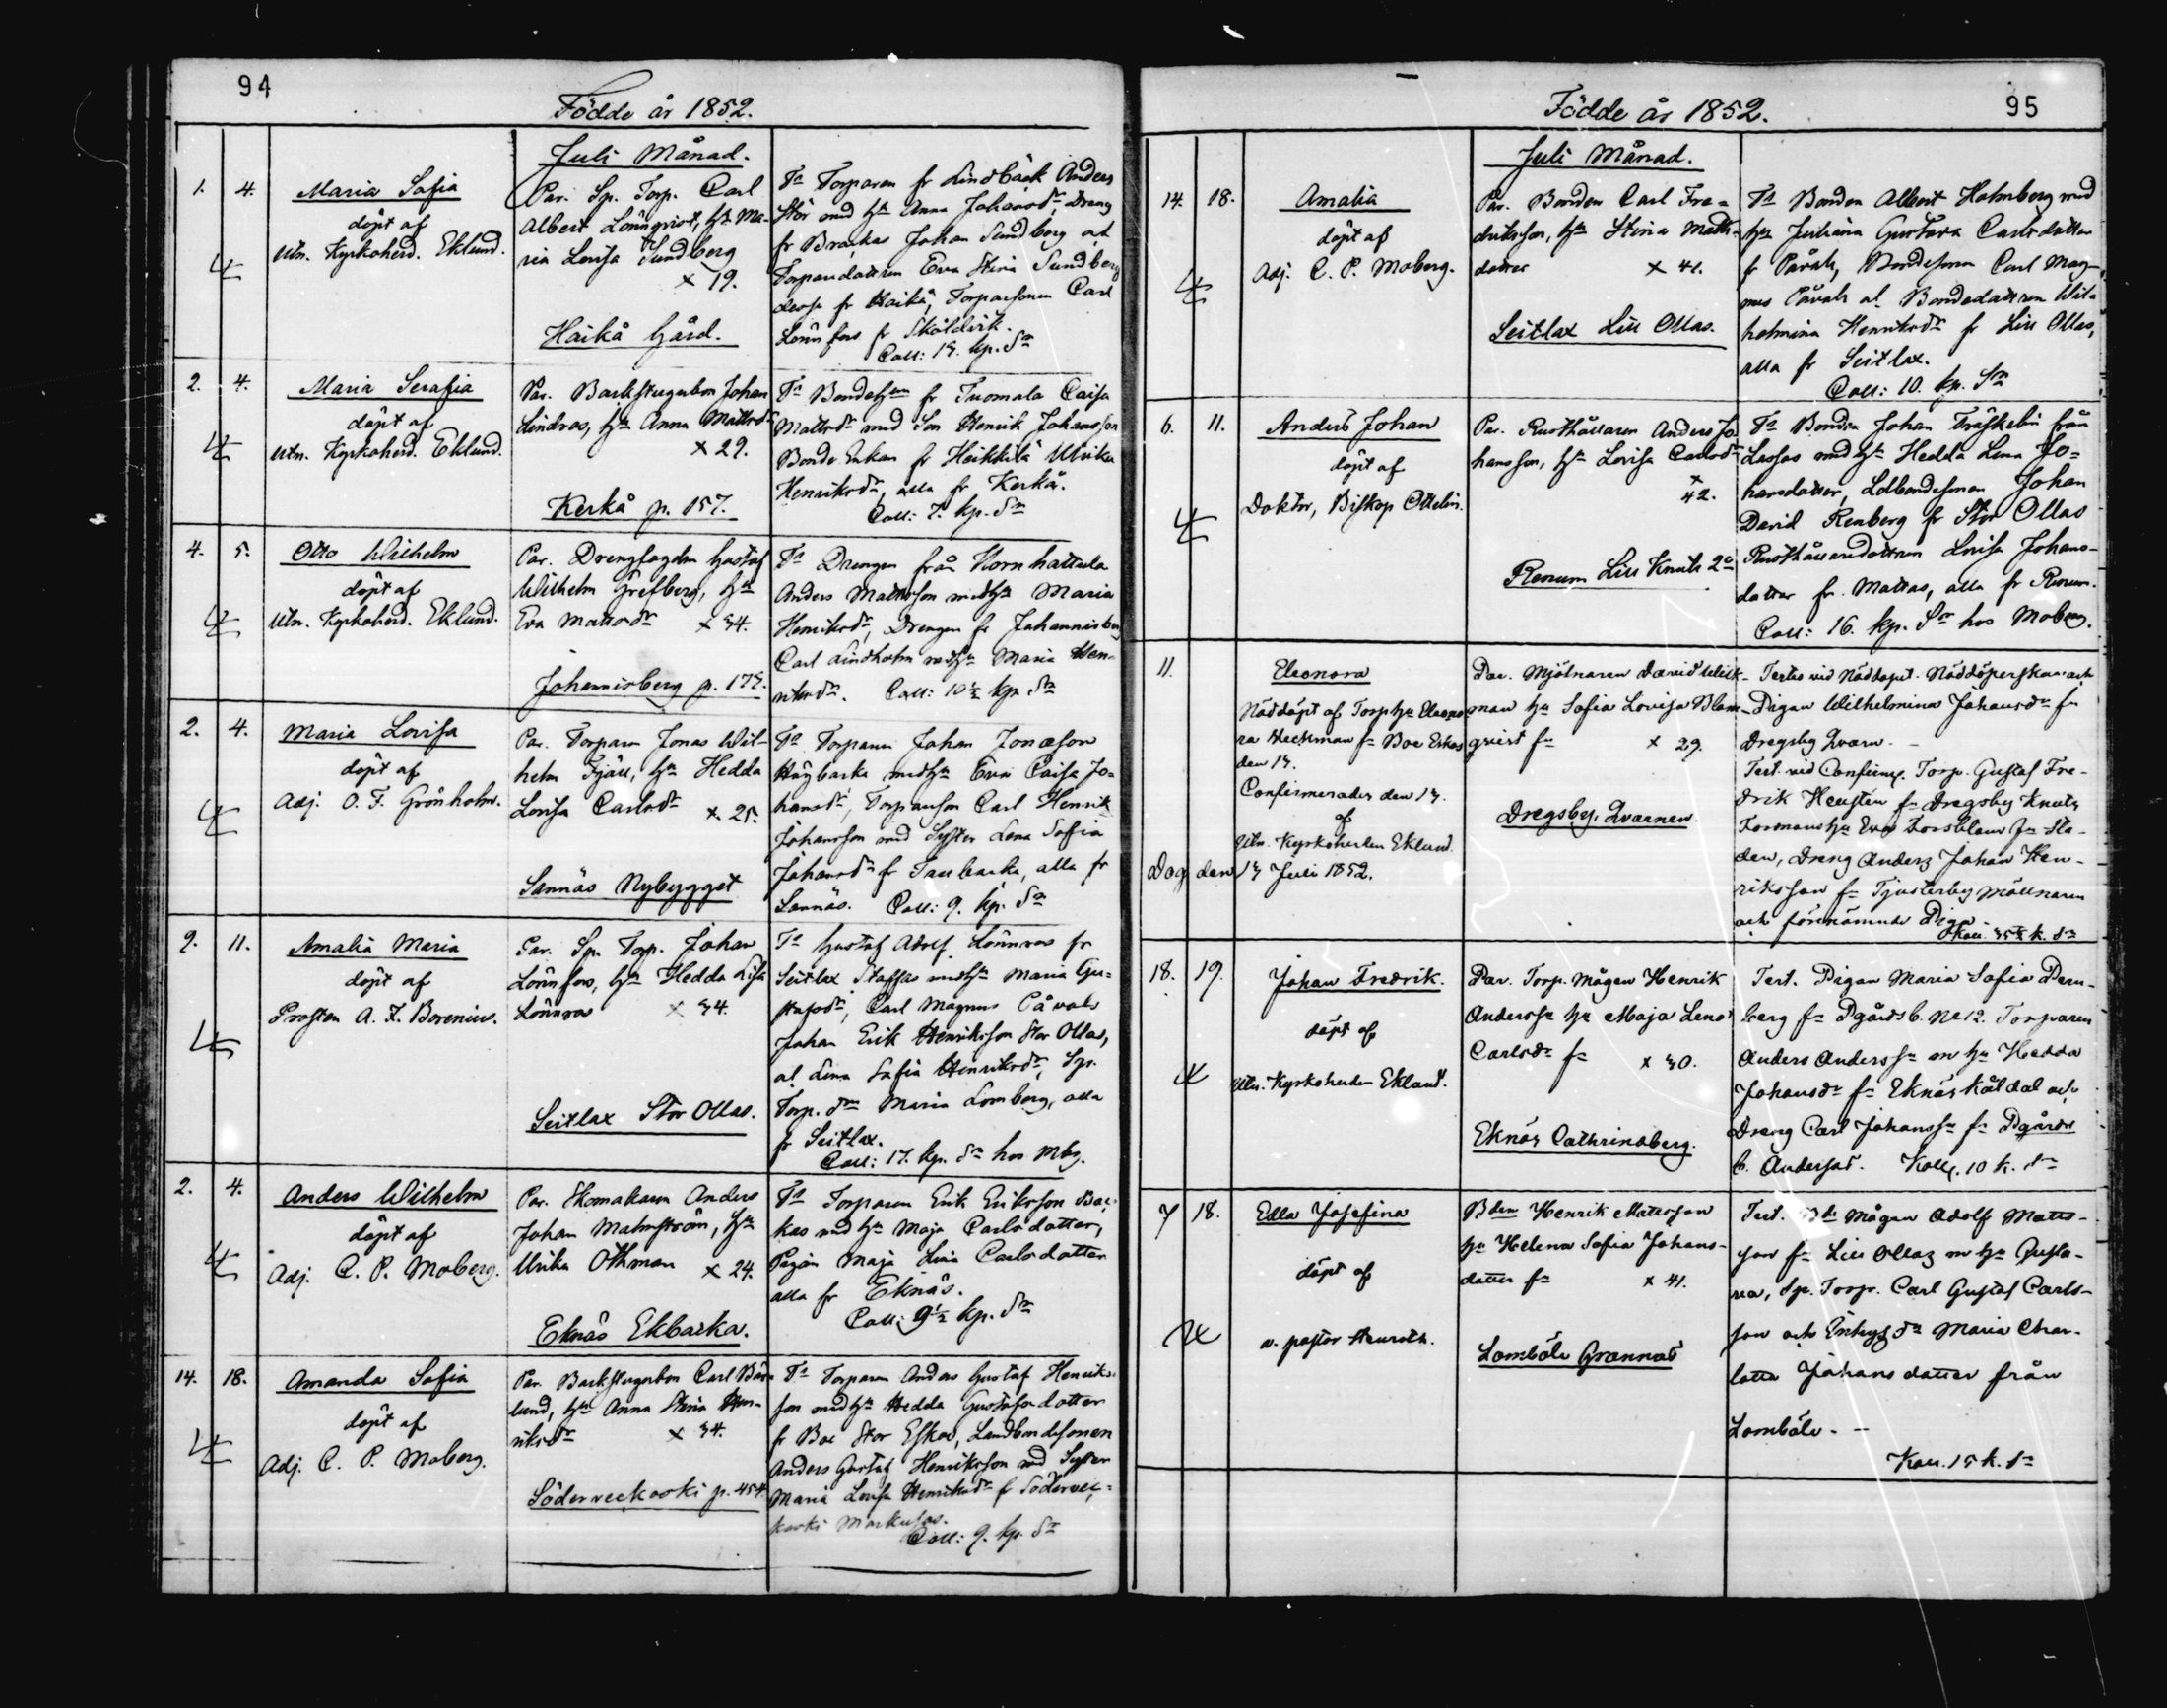 94
Födde år 1852.
Juli Månad.
1. 4. Maria Sofia
döpt af
Utn. Kyrkoherd. Eklund.
Par. Sp. Torp. Carl
Albert Lönnqvist, hu Ma-
ria Lovisa Sundberg
x 19.
Haikå Gård.
Ts Torparen fr Lindbäck Anders
Stör med hu Anna Johansdr, Dreng
fr Brackas Johan Sundberg at
Torparedattren Eva Stina Sundberg
fr Haikå, Torparsonen Carl
Lönnfors fr Sköldvik.
Coll: 15. kp. Sr
2. 4. Maria Serafia
döpt af
Utn. Kyrkoherd. Eklund.
Par. Backstugubon Johan
Lindroos, hu Anna Mattsdr
x 29.
Kerkå p. 157.
Ts Bondehun fr Tuomala Caisa
Mattsdr med Son Henrik Johansson
Bonde Enkan fr Heikkilä Ulrika
Henriksdr, alla fr Kerkå.
Coll: 7. kp. Sr
4. 5. Otto Wilhelm
döpt af
Utn. Kyrkoherd. Eklund.
Par. Drengfogden Gustaf
Wilhelm Grefberg, hu
Eva Mattsdr x 34.
Johannisberg p. 175.
Ts Drengen från Kornhattula
Anders Mattsson med hu Maria
Henriksdr, Drengen fr Johannisberg
Carl Lindholm med hu Maria Hen-
riksdr. Coll: 10½ kp Sr
2. 4. Maria Lovisa
döpt af
Adj. O. F. Grönholm.
Par. Torparen Jonas Wil-
helm Fjäll, hu Hedda
Lovisa Carlsdr x. 25.
Sannäs Nybygget
Ts Torparen Johan Jonasson
Högbacka med hu Eva Caisa Jo-
hansdr, Torparson Carl Henrik
Johansson med Syster Lena Sofia
Johansdr fr Tallbacka, alla fr
Sannäs. Coll: 9. kp. Sr
9. 11. Amalia Maria
döpt af
Prosten A. F. Borenius.
Par. Sp. Torp. Johan
Lönnfors, hu Hedda Lisa
Lönnros x 34.
Seitlax Stor Ollas.
Ts Gustaf Adolf Lönnros fr
Seitlax Staffas med hu Maria Gu-
stafsdr, Carl Magnus Påvals
Johan Erik Henriksson Stor Ollas,
al Lina Sofia Henriksdr, Sp.
Torp. dr Maria Lomberg, alla
fr Seitlax.
Coll: 17. kp. Sr hos Mbg.
2. 4. Anders Wilhelm
döpt af
Adj. C. P. Moberg.
Par. Skomakaren Anders
Johan Malmström, hu
Ulrika Öthman x 24.
Eknäs Ekbacka.
Ts Torparen Erik Eriksson Bac-
kas med hu Maja Carlsdotter,
Pigan Maja Lisa Carlsdotter
alla fr Eknäs.
Coll: 9½ kp. Sr
14. 18. Amanda Sofia
döpt af
Adj. C. P. Moberg.
Par. Backstugubon Carl Bäck-
lund, hu Anna Stina Hen-
riksdr x 34.
Söderveckoski p. 454.
Ts Torparen Anders Gustaf Henriks-
son med hu Hedda Gustafsdotter
fr Boe Stor Eskas, Landbondesonen
Anders Gustaf Henriksson med Syster
Maria Lovisa Henriksdr fr Södervec-
koski Markusas.
Coll: 9. kp. Sr
95
Födde år 1852.
Juli Månad.
14. 18. Amalia
döpt af
Adj. C. P. Moberg.
Par. Bonden Carl Fre-
driksson, hu Stina Matts-
dotter x 41.
Seitlax Lill Ollas.
Ts Bonden Albert Holmberg med
hu Juliana Gustava Carlsdotter
fr Påvals, Bondesonen Carl Mag-
nus Påvals al. Bondedattren Wil-
helmina Henriksdr fr Lill Ollas,
alla fr Seitlax.
Coll: 10. kp. Sr
6. 11. Anders Johan
döpt af
Doktor, Biskop Ottelin.
Par. Rusthållaren Anders Jo-
hansson, hu Lovisa Carlsdr
x
42.
Renum Lill Knuts 2a
Ts Bonden Johan Träskelin från
Lassas med hu Hedda Lena Jo-
hansdotter, Ldbondesonen Johan
David Renberg fr Stor Ollas
Rusthållaredattren Lovisa Johans-
dotter fr. Mattas, alla fr Renum.
Coll: 16. kp. Sr hos Moberg.
11. Eleonora
Nöddöpt af Torp hu Eleono-
ra Heckman fr Boe Eskas
den 13.
Confirmerades den 13.
af
Utn. Kyrkoherden Eklund.
Dog den 13 Juli 1852.
Par. Mjölnaren David Wick-
man hu Sofia Lovisa Blom-
qvist fr x 29.
Dregsby Qvarnen.
Testes vid Nöddopet. Nöddöperskan och
Pigan Wilhelmina Johansdr fr
Dregsby Qvarn. -
Test. vid Confirm. Torp. Gustaf Fre-
drik Heusten fr Dregsby Knuts
Formans hu Eva Forsblom fr Sta-
den, Dreng Anders Johan Hen-
riksson fr Tjusterby Möllnaren
och förenämnde Piga
Koll. 35½ k. Sr
18. 19. Johan Fredrik.
döpt af
Utn. Kyrkoherden Eklund.
Par. Torp. Mågen Henrik
Anderss. hu Maja Lena
Carlsdr fr x 30.
Eknäs Cathrinaberg.
Test. Pigan Maria Sofia Dern-
berg fr Pgårds b. No 12. Torparen
Anders Anderss. m hu Hedda
Johansdr fr Eknäs Kåldal och
Dreng Carl Johanss. fr Pgårds
b. Andersas. Koll. 10 k. Sr
7 18. Edla Josefina
döpt af
v. pastor Heuroth.
Bden Henrik Mattsson
hu Helena Sofia Johans-
dotter fr x 41.
Lomböle Grannas
Test. Bde Mågen Adolf Matts-
son fr Lill Ollas m hu Gusta-
va, Sp. Torp. Carl Gustaf Carls-
son och Enkys dr Maria Char-
lotta Johansdotter från
Lomböle. --
Koll. 15 k. Sr